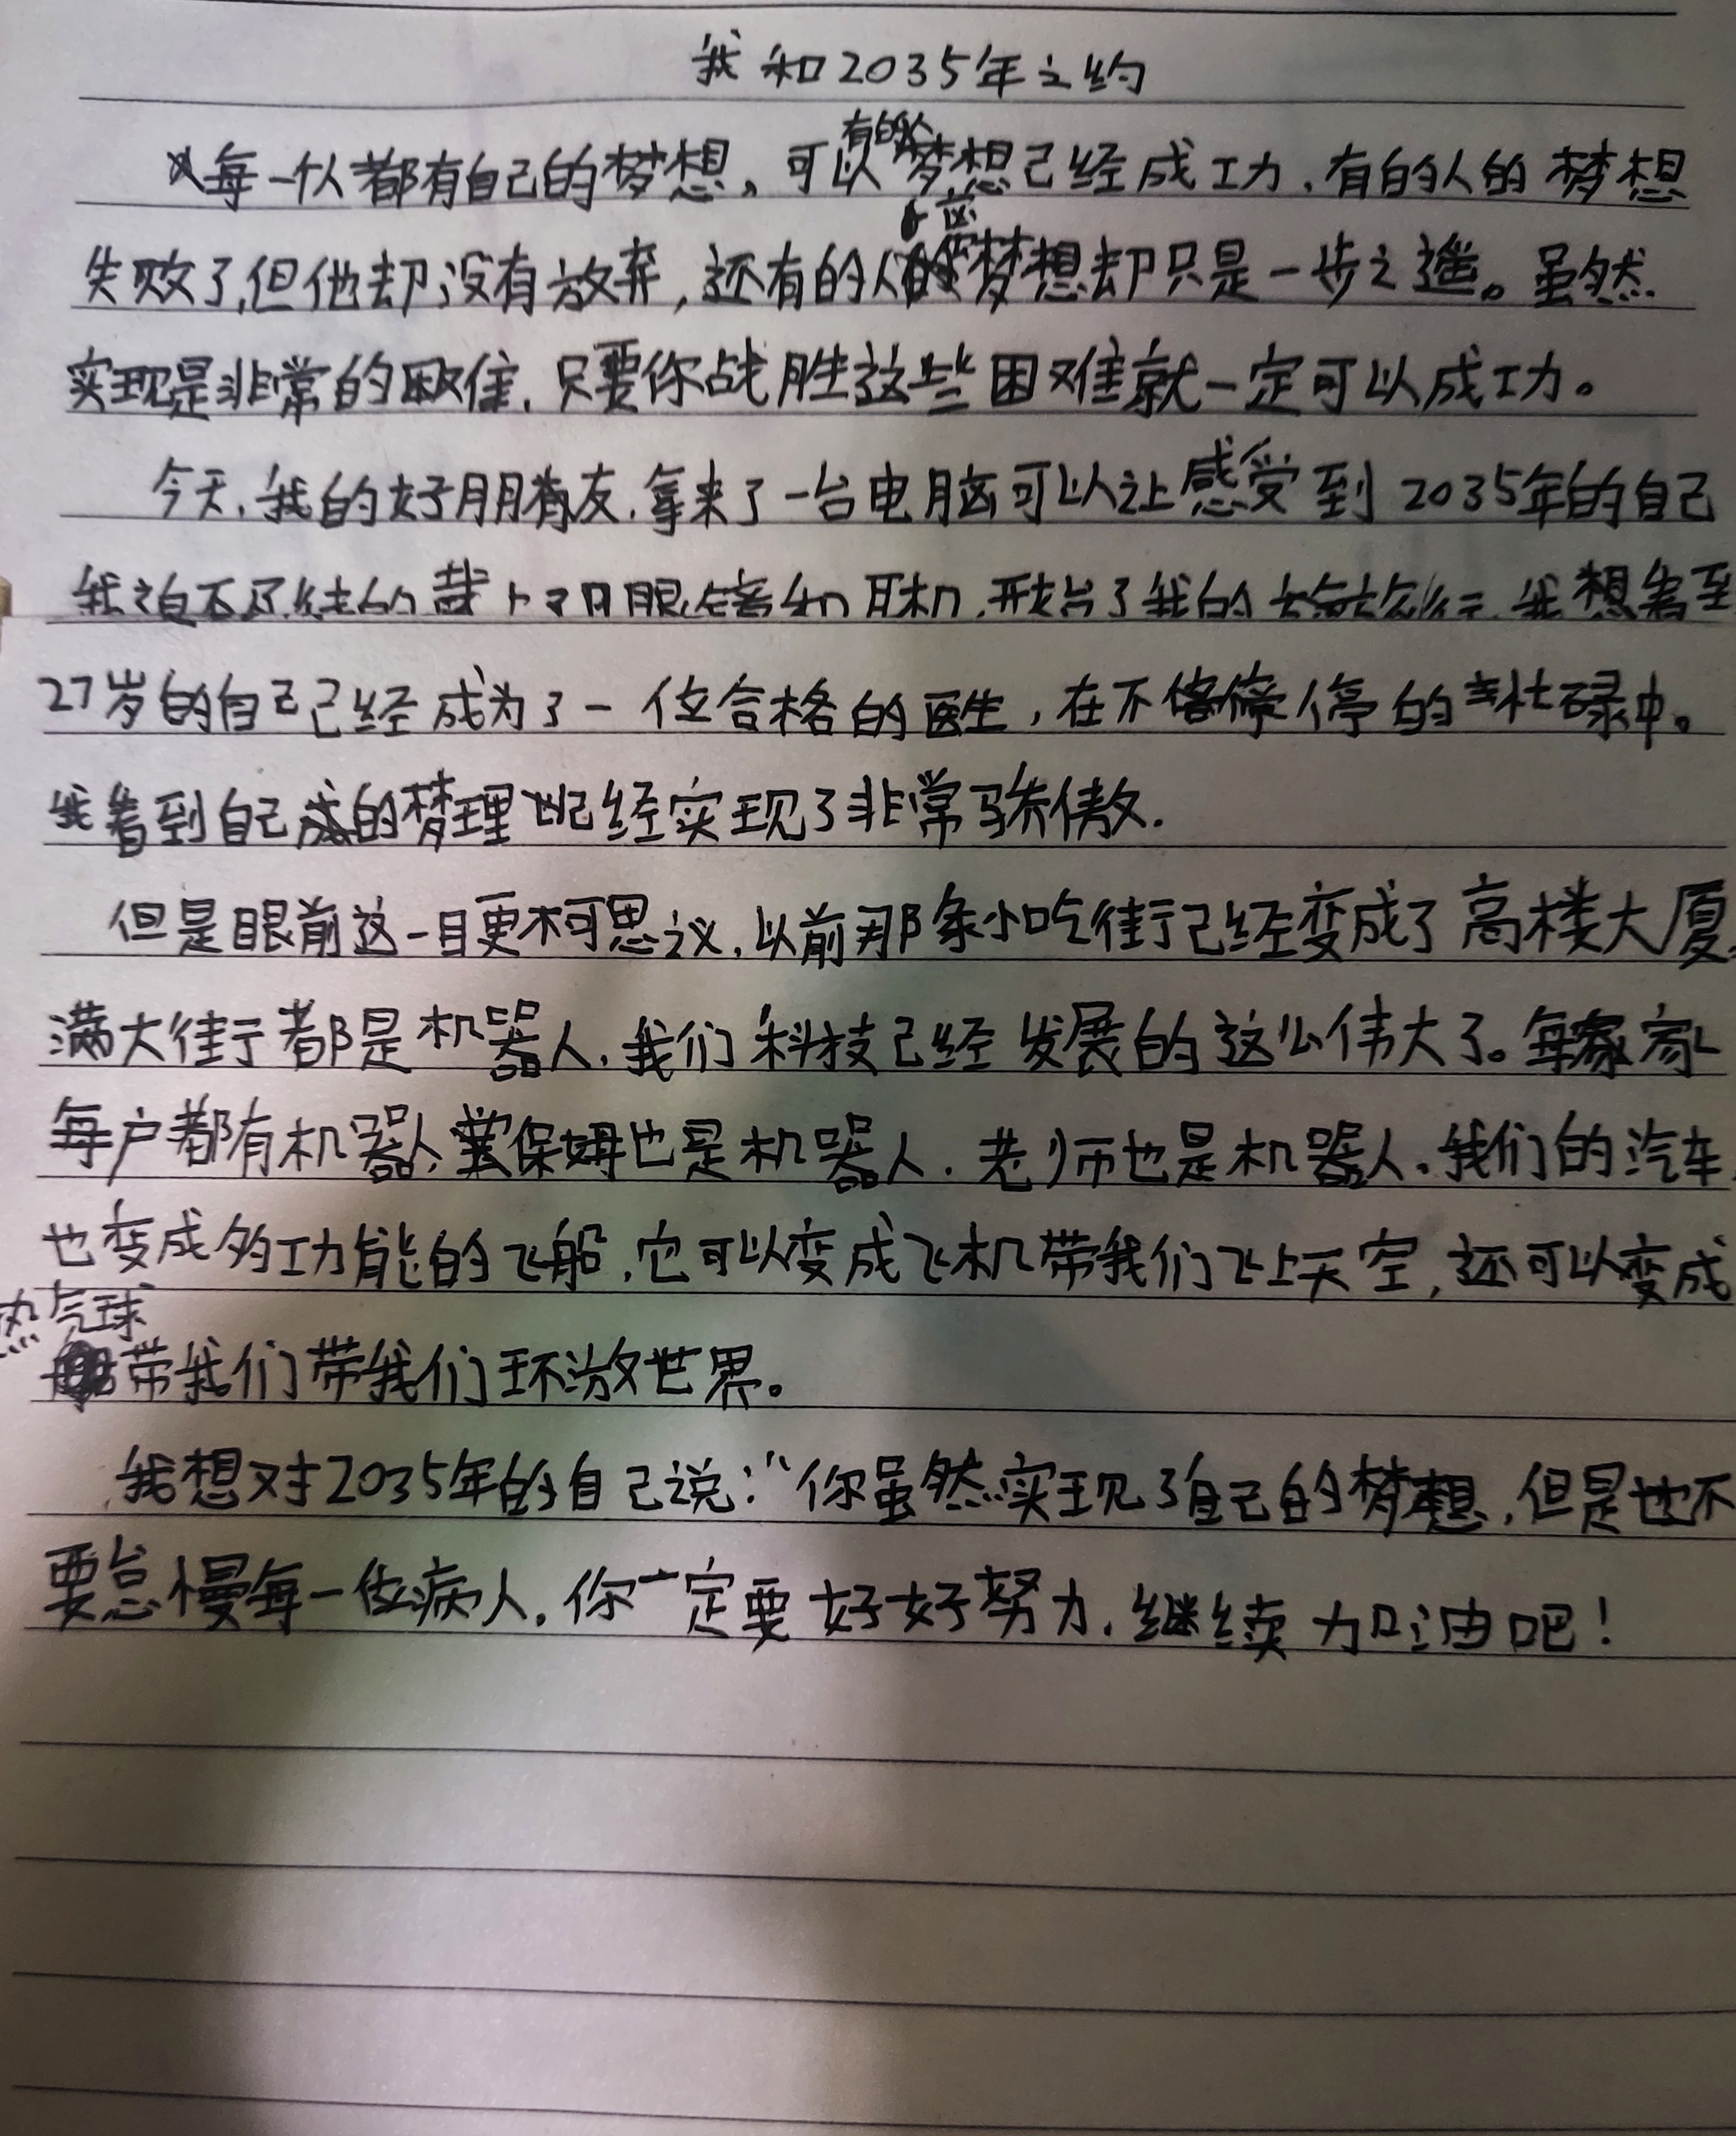 我和2035年之约
每一个人都有自己的梦想。可以有的人梦想己经成工力,有的人的梦想
失败了,但他却没有放弃,还有的人的梦想却只是一步之遥。虽然
实现是非常的困难,只要你战胜这些困难就一定可以成功。
今天,我的好朋友,拿来了一台电脑可以让感受到2035年的自己
我迫不及待的戴上了眼镜和耳机,开台了我的旅行,我想看到
27岁的自己己经成为了一位合格的医生,在不停的忙碌中。
我看到自己的梦理己经实现了非常骄傲.
但是眼前这一目更不可思议,以前那条小吃街己经变成了高楼大厦,
满大街都是机器人,我们科技己经发展的这么伟大了。每家
每户都有机器人,保姆也是机器人.老师也是机器人.我们的汽车
也变成多功能的飞船,它可以变成飞机带我们飞上天空,还可以变成
热气球
带我们带我们环游世界。
我想对2035年的自己说:“你虽然实现了自己的梦想,但是也不
要怠慢每一位病人,你一定要好好努力,继续加油吧!